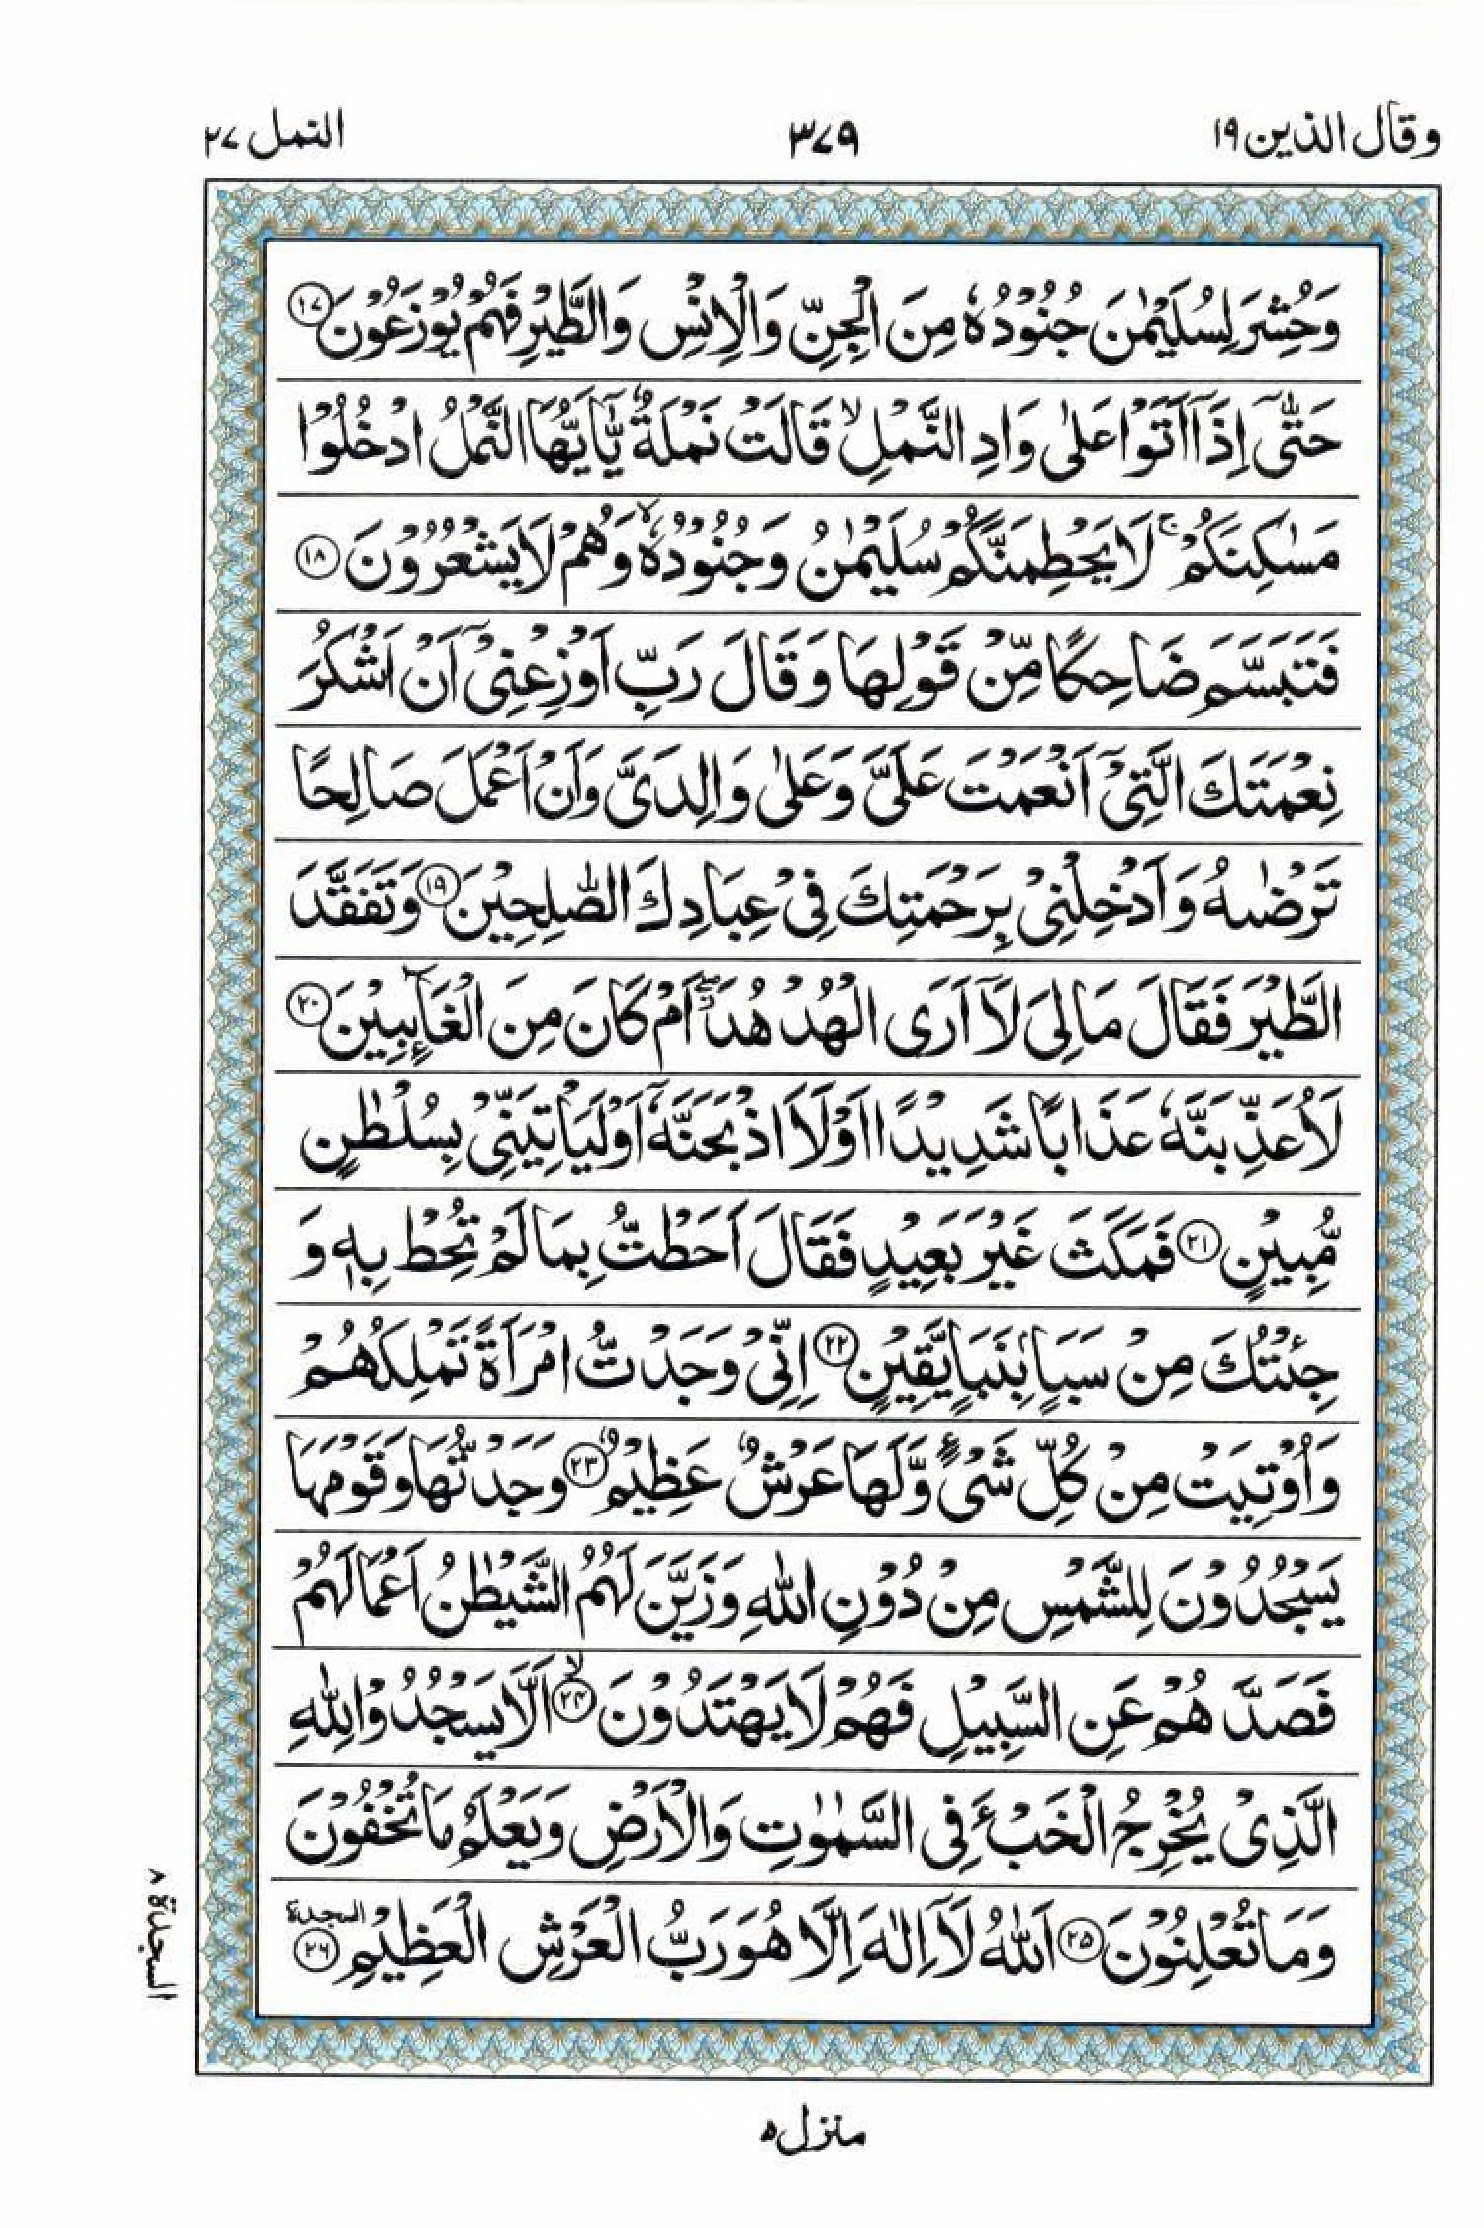 وقال الذين ١٩
٣٧٩
النمل ٢٧
وَحُشِرَ لِسُلَيْمٰنَ جُنُوْدُهٗ مِنَ الْجِنِّ وَالْاِنْسِ وَالطَّيْرِ فَهُمْ يُوْزَعُوْنَ ١٧
حَتّٰۤى اِذَاۤ اَتَوْا عَلٰى وَادِ النَّمْلِ ۙ قَالَتْ نَمْلَةٌ يّٰۤاَيُّهَا النَّمْلُ ادْخُلُوْا
مَسٰكِنَكُمْ ۚ لَا يَحْطِمَنَّكُمْ سُلَيْمٰنُ وَجُنُوْدُهٗ ۙ وَهُمْ لَا يَشْعُرُوْنَ ١٨
فَتَبَسَّمَ ضَاحِكًا مِّنْ قَوْلِهَا وَقَالَ رَبِّ اَوْزِعْنِيْۤ اَنْ اَشْكُرَ
نِعْمَتَكَ الَّتِيْۤ اَنْعَمْتَ عَلَيَّ وَعَلٰى وَالِدَيَّ وَاَنْ اَعْمَلَ صَالِحًا
تَرْضٰىهُ وَاَدْخِلْنِيْ بِرَحْمَتِكَ فِيْ عِبَادِكَ الصّٰلِحِيْنَ ١٩ وَتَفَقَّدَ
الطَّيْرَ فَقَالَ مَا لِيَ لَاۤ اَرَى الْهُدْهُدَ ۖ اَمْ كَانَ مِنَ الْغَآئِبِيْنَ ٢٠
لَاُعَذِّبَنَّهٗ عَذَابًا شَدِيْدًا اَوْ لَاَا۟ذْبَحَنَّهٗۤ اَوْ لَيَاْتِيَنِّيْ بِسُلْطٰنٍ
مُّبِيْنٍ ٢١ فَمَكَثَ غَيْرَ بَعِيْدٍ فَقَالَ اَحَطْتُّ بِمَا لَمْ تُحِطْ بِهٖ وَ
جِئْتُكَ مِنْ سَبَاٍ بِنَبَاٍ يَّقِيْنٍ ٢٢ اِنِّيْ وَجَدْتُّ امْرَاَةً تَمْلِكُهُمْ
وَاُوْتِيَتْ مِنْ كُلِّ شَيْءٍ وَّلَهَا عَرْشٌ عَظِيْمٌ ٢٣ وَجَدْتُّهَا وَقَوْمَهَا
يَسْجُدُوْنَ لِلشَّمْسِ مِنْ دُوْنِ اللّٰهِ وَزَيَّنَ لَهُمُ الشَّيْطٰنُ اَعْمَالَهُمْ
فَصَدَّهُمْ عَنِ السَّبِيْلِ فَهُمْ لَا يَهْتَدُوْنَ ۙ ٢٤ اَلَّا يَسْجُدُوْا لِلّٰهِ
الَّذِيْ يُخْرِجُ الْخَبْءَ فِي السَّمٰوٰتِ وَالْاَرْضِ وَيَعْلَمُ مَا تُخْفُوْنَ
وَمَا تُعْلِنُوْنَ ٢٥ اَللّٰهُ لَاۤ اِلٰهَ اِلَّا هُوَ رَبُّ الْعَرْشِ الْعَظِيْمِ السجدة ٢٦
السجدة ٨
منزل ٥